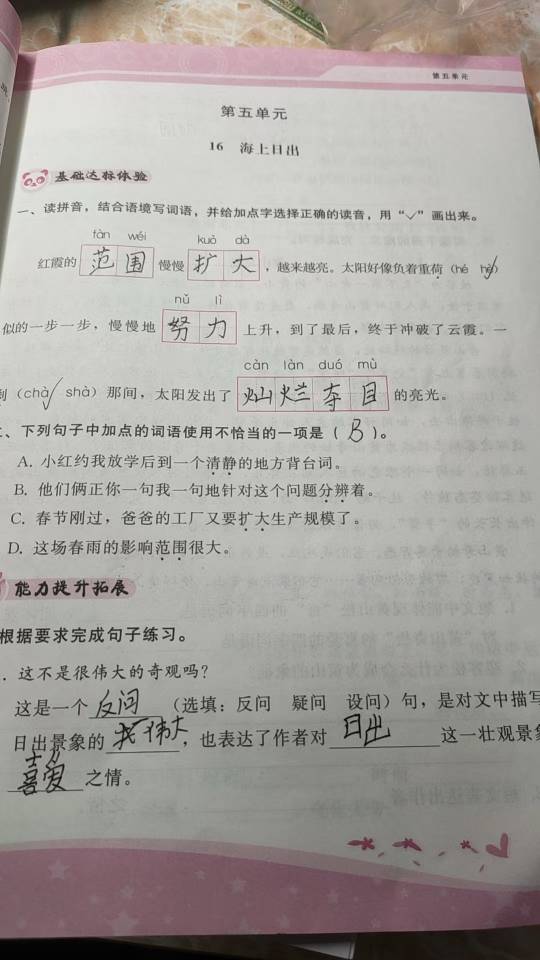 第五单元
第五单元
16 海上日出
基础达标体验
一、读拼音，结合语境写词语，并给加点字选择正确的读音，用“✓”画出来。
fàn wéi kuò dà
红霞的 范围 慢慢 扩大，越来越亮。太阳好像负着重荷（hé hè✓）
nǔ lì
似的一步一步，慢慢地 努力 上升，到了最后，终于冲破了云霞。一
càn làn duó mù
（chà✓ shà）那间，太阳发出了 灿烂夺目 的亮光。
、下列句子中加点的词语使用不恰当的一项是（ B ）。
A. 小红约我放学后到一个清静的地方背台词。
B. 他们俩正你一句我一句地针对这个问题分辨着。
C. 春节刚过，爸爸的工厂又要扩大生产规模了。
D. 这场春雨的影响范围很大。
能力提升拓展
根据要求完成句子练习。
. 这不是很伟大的奇观吗？
这是一个 反问 （选填：反问 疑问 设问）句，是对文中描写
日出景象的 伟大，也表达了作者对 日出 这一壮观景象
喜爱 之情。